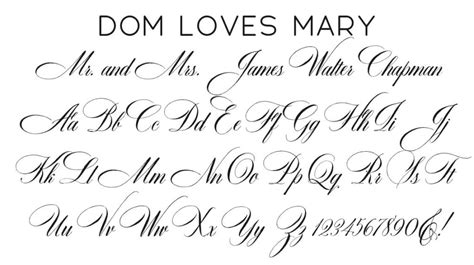 DOM LOVES MARY
Mr. and Mrs. James Walter Chapman
Aa Bb Cc Dd Ee Ff Gg Hh Ii Jj
Kk Ll Mm Nn Oo Pp Qq Rr Ss Tt
Uu Vv Ww Xx Yy Zz 1234567890&!